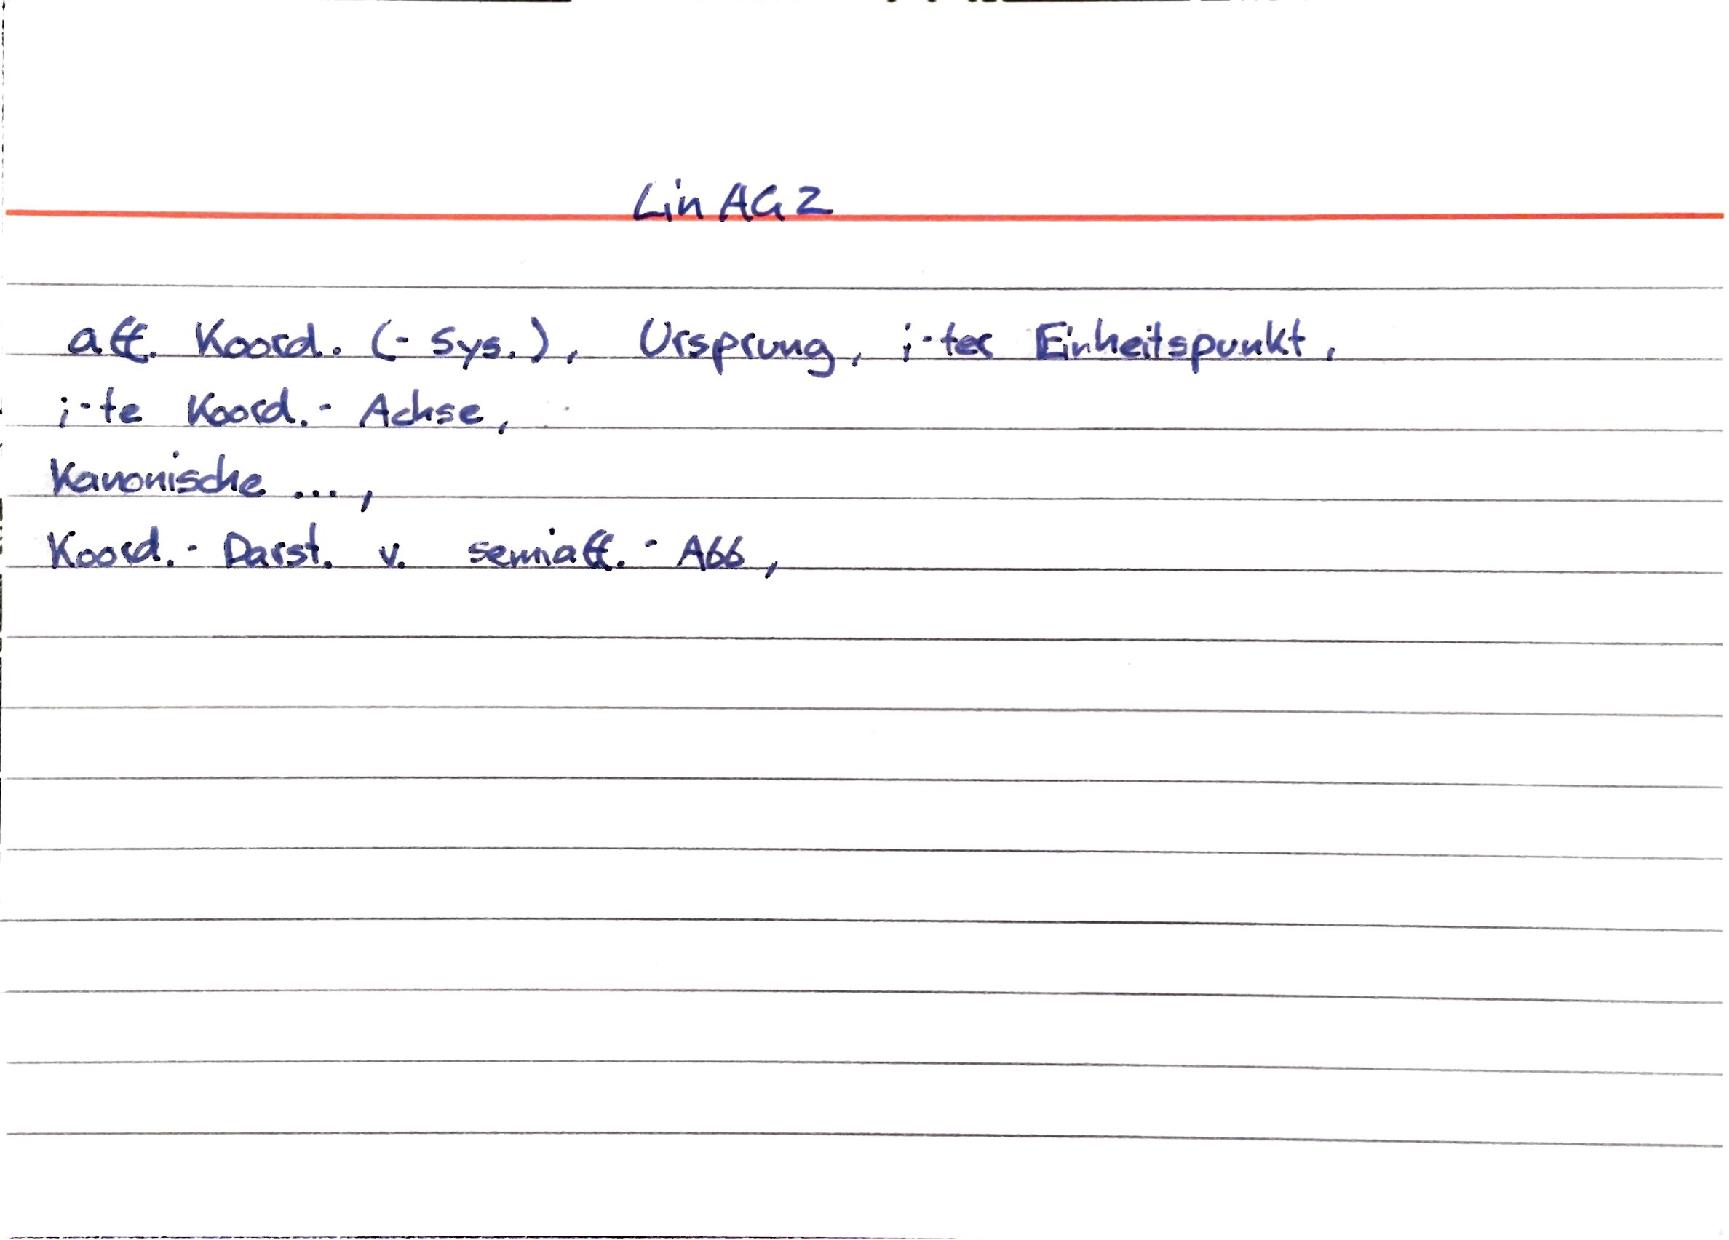 Lin AG 2
aff. Koord. (- Sys.), Ursprung, i-ter Einheitspunkt,
i-te Koord.- Achse,
Kanonische ...,
Koord.- Darst. v. semiaff.- Abb,